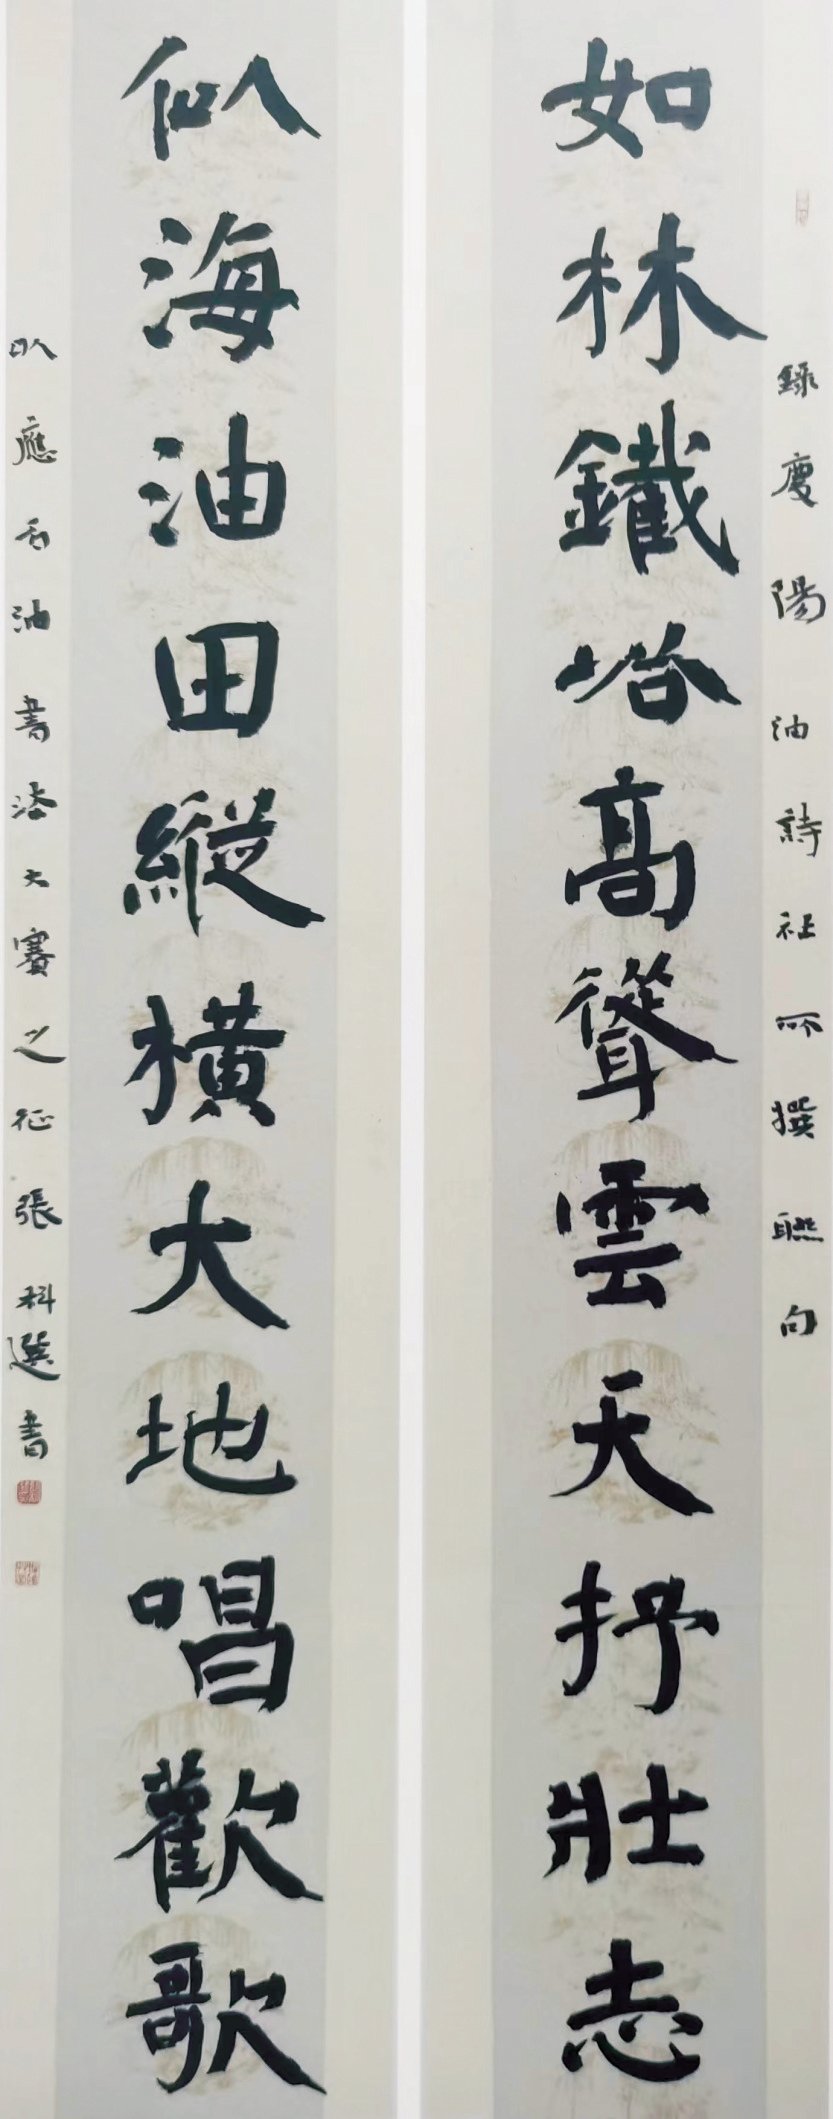 錄慶陽油詩社所撰聯句
如林鐵高聳雲天抒壯志
似海油田縱橫大地唱歡歌
以應石油書法大賽之征張科選書